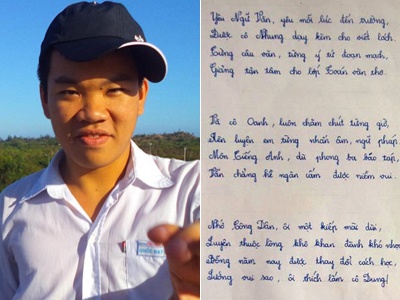 Yêu Ngữ Văn, yêu mỗi lúc đến trường,
Được cô Nhung dạy kèm cho viết lách.
Từng câu văn, từng ý tứ đoạn mạch,
Giảng tận tâm cho lớp Toán văn thơ.
Và cô Oanh, luôn chăm chút từng giờ,
Rèn luyện em từng nhấn âm, ngữ pháp.
Môn Tiếng Anh, dù phong ba bão táp,
Vẫn chẳng hề ngăn cấm được niềm vui.
Nhớ Công Dân, ôi một kiếp mãi dùi,
Luyện thuộc lòng khô khan đành khó nhọc
Bỗng năm nay được thay đổi cách học,
Sướng vui sao, ôi thích lắm cô Dung!